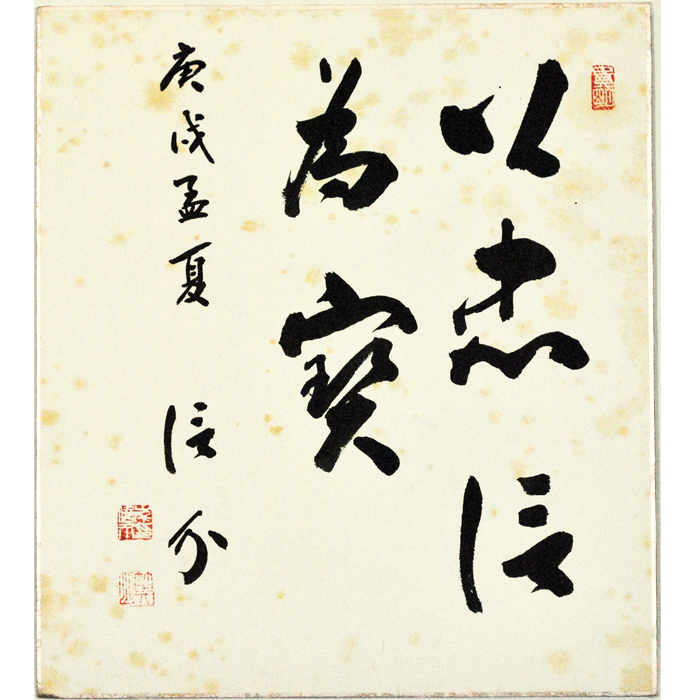 以忠信
為寳
庚戌孟夏 信介